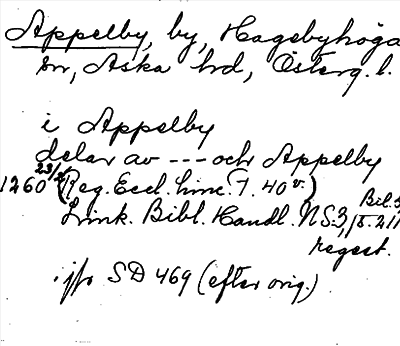 Appelby, by, Hagebyhöga
sn, Aska hd, Österg. l.
i Appelby
delar av --- och Appelby
1260 23/2 (Reg. Eccl. Linc. f. 40 v.)
Link. Bibl. Handl. NS 3, Bil. 3, s. 211
regest.
jfr SD 469 (efter orig.)